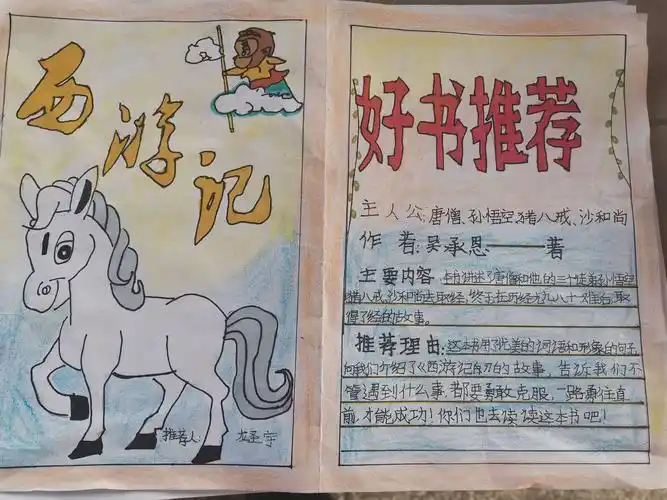 西游记
推荐人：
好书推荐
主人公：唐僧、孙悟空、猪八戒、沙和尚
作者：吴承恩——著
主要内容：本书讲述了唐僧和他的三个徒弟孙悟空
猪八戒、沙和尚去取经，终于在历经九九八十一难后，取
得了经的故事。
推荐理由：这本书用了优美的词语和形象的句子，
向我们介绍了《西游记》的故事，告诉我们不
管遇到什么事，都要勇敢克服，一路勇往直
前，才能成功！你们也去读读这本书吧！